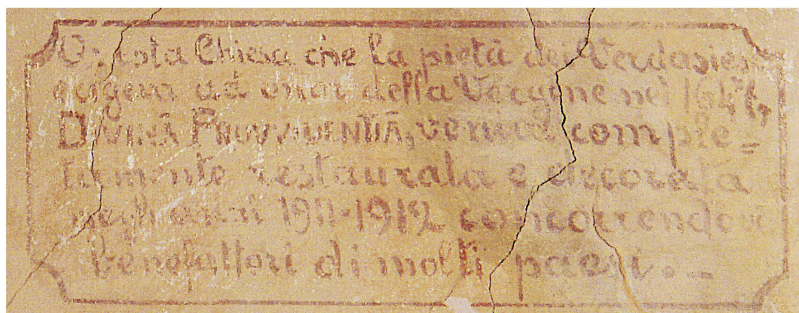 Questa Chiesa che la pietà dei Verdasiesi
erigeva ad onor della Vergine nel
DIVINA PROVVIDENTIA, veniva comple=
tamente restaurata e decorata
negli anni 1911-1912 concorrendovi
benefattori di molti paesi.-